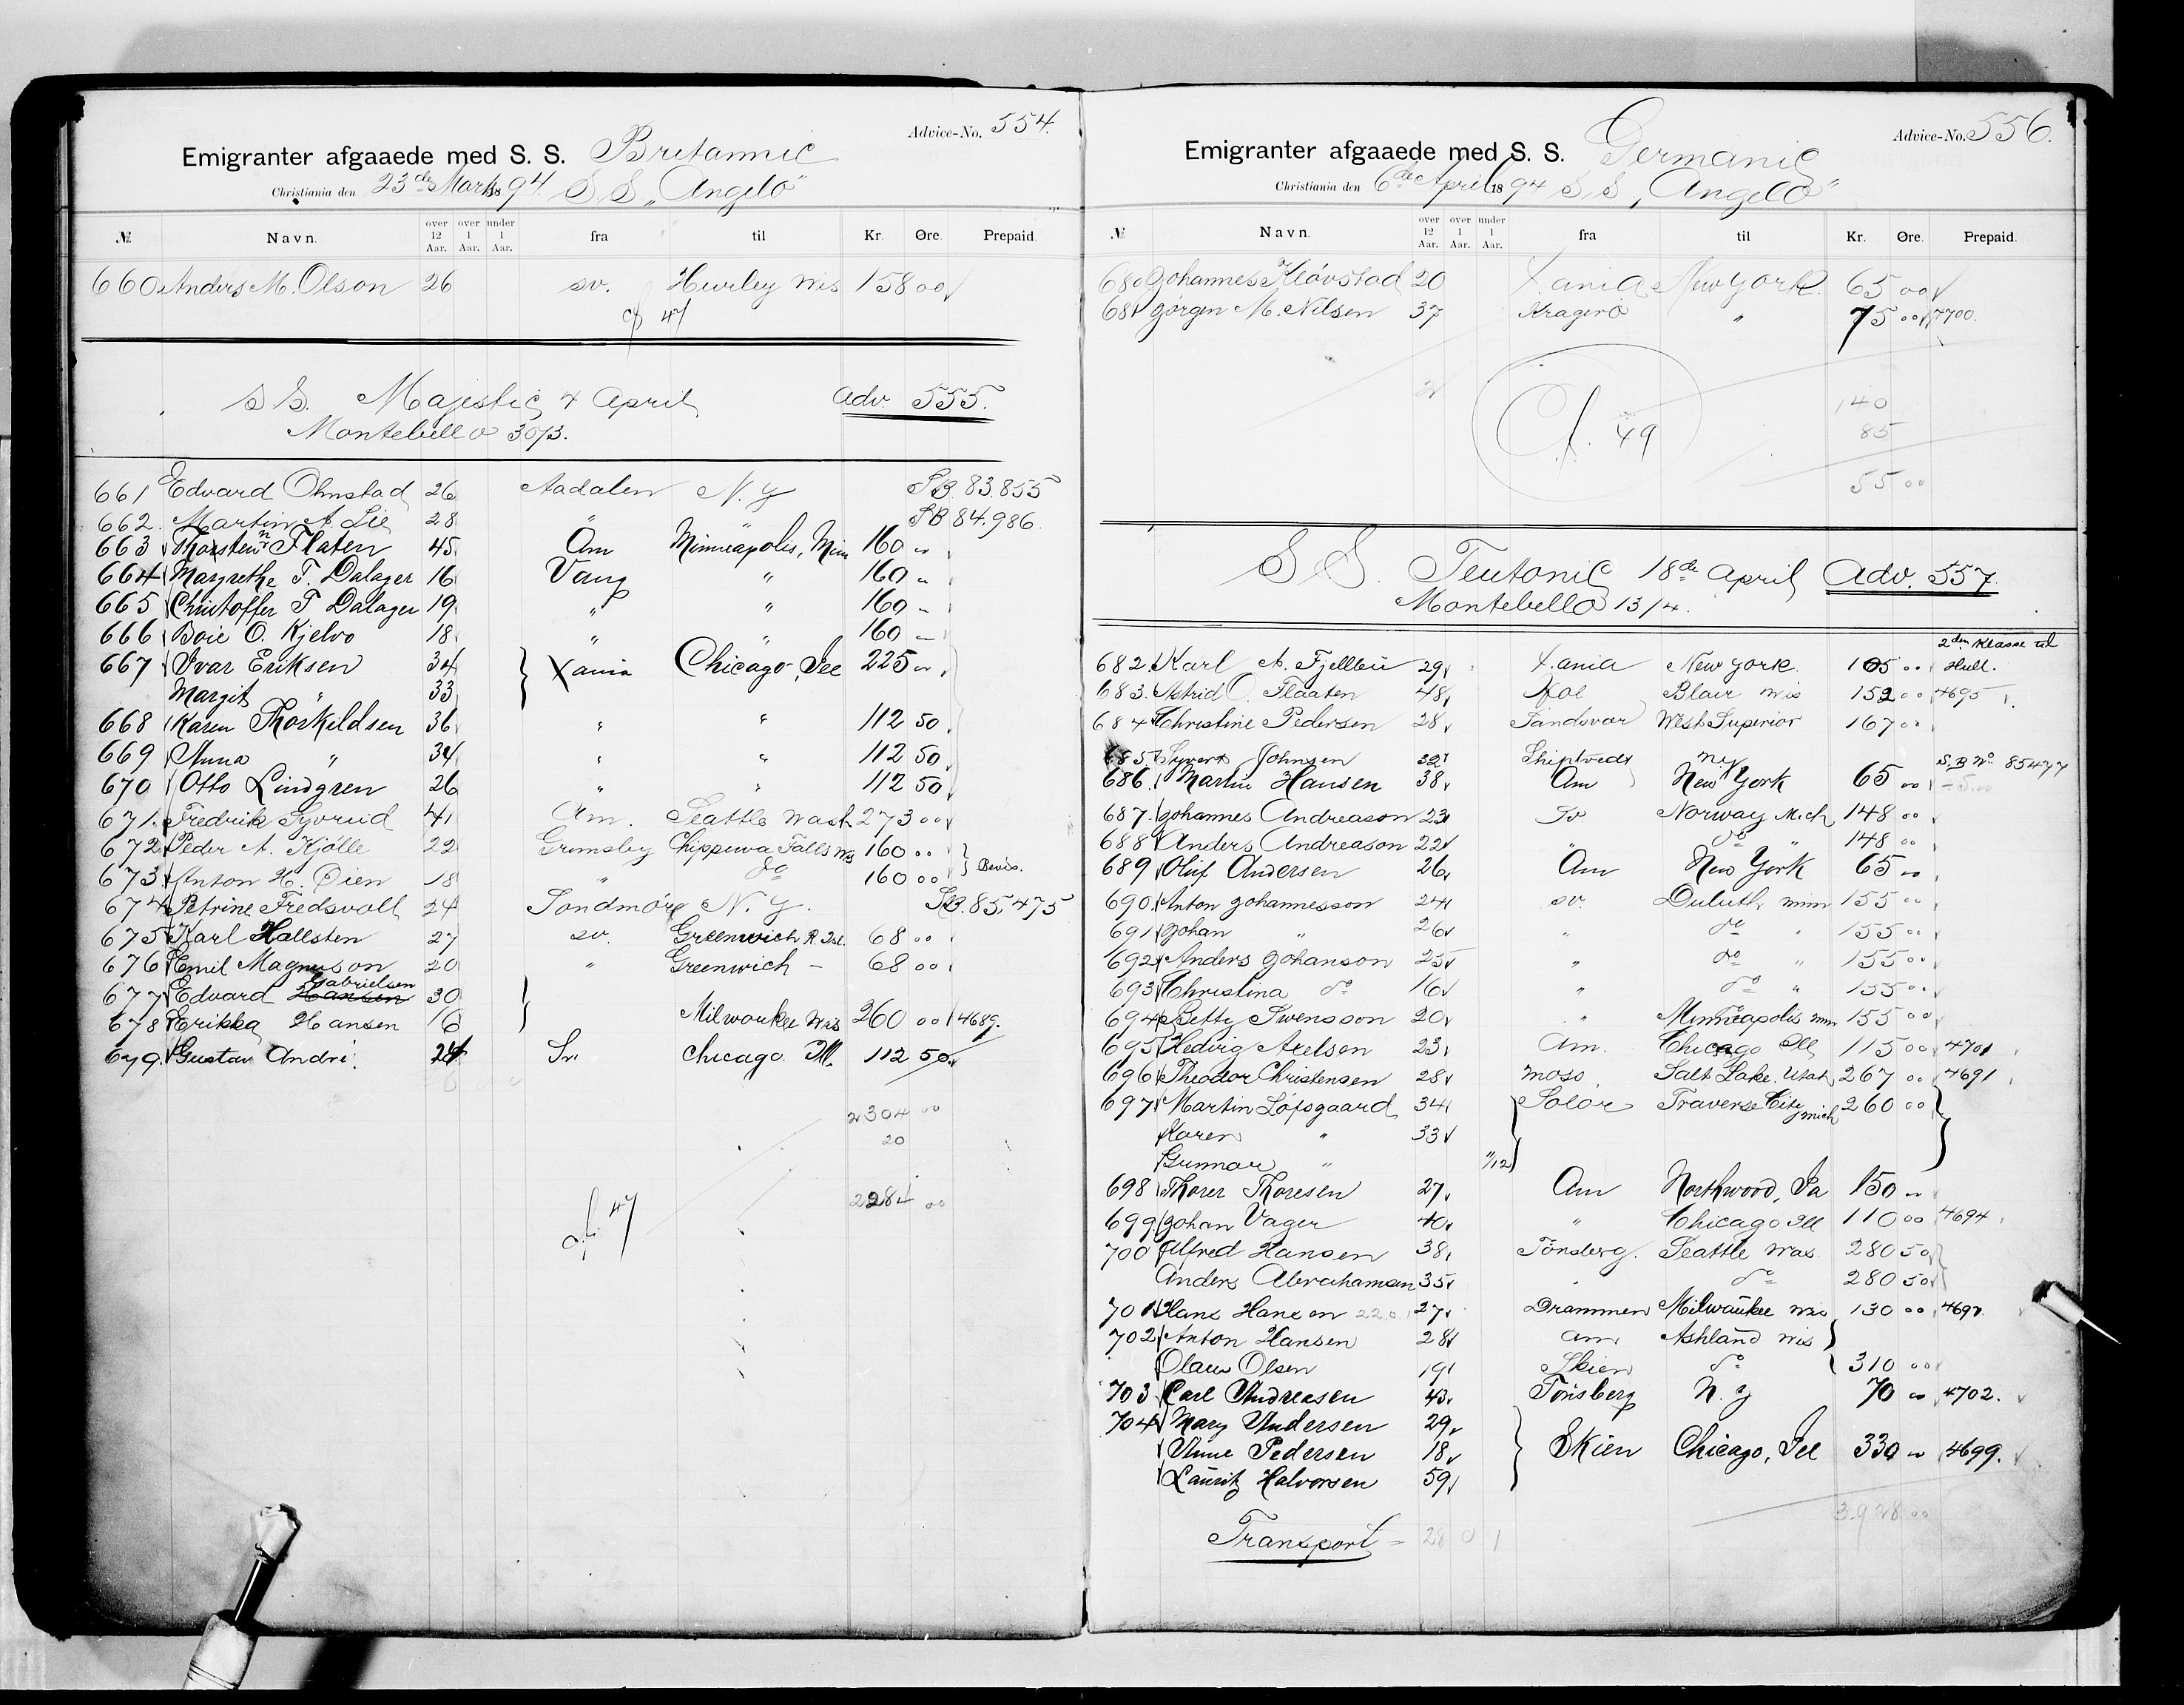 Advice-No. 554.
Emigranter afgaaede med S. S. Britannic
Christiania den 23de Marts 1894. S S „Angelo"
№ Navn. over 12 Aar. over 1 Aar. under 1 Aar. fra til Kr. Øre. Prepaid.
660 Anders M. Olson 26 sv. Hurley Wis 158 00
cf 47
S S. Majestic 4 April Adv. 555.
Montebello 30/3.
661 Edvard Ohnstad 26 Aadalen N. Y SB. 83.855
662. Martin A. Lie 28 " " SB 84.986
663 Thorsten Flaten 45 Am Minneapolis, Min 160 "
664 Margrethe T. Dalager 16 Vang " 160 "
665 Christoffer T Dalager 19 " " 160 "
666 Boie O. Kjelvo 18 " " 160 "
667 Ivar Eriksen 34 } Xania Chicago, Ill 225 "
Margit " 33
668 Karen Thorkildsen 36 " " 112 50
669 Anna " 34 " " 112 50
670 Otto Lindgren 26 " " 112 50
671. Fredrik Syvrud 41 Am. Seattle Wash 273 00
672 Peder A. Kjölle 22 Grimsby Chippewa Falls Wis 160 00 }
673. Anton H. Öien 18 " do 160 00
674 Petrine Fredsvoll 24 Söndmöre N. Y. SB. 85.475
675 Karl Hallsten 27 sv. Greenwich R. Isl. 68 00
676 Emil Magnuson 20 " Greenwich - 68 00
Gabrielsen
677 Edvard Hansen 30 }
678 Erikka Hansen 16 Milwaukee Wis 260 00 4689.
679. Gustav André. 24 Sv. Chicago Ill. 112 50
2304 00
20
2284 00
cf. 47
Advice-No. 556.
Emigranter afgaaede med S. S. Germanic
Christiania den 6de April 1894 S S „Angelo"
№ Navn. over 12 Aar. over 1 Aar. under 1 Aar. fra til Kr. Øre. Prepaid.
680 Johannes Klövstad 20 Xania New York. 65 00
681 Jörgen M. Nilsen 37 Kragerö " 75 00 4700.
2
140
Cf. 49
85
55 00
S S. Teutonic 18de April Adv. 557.
Montebello 13/4.
2den Klasse til
682. Karl A. Fjellbu 29 Xania New York. 105 00 Hull.
683. Astrid O. Flaaten 48 Hol Blair Wis 152 00 4695
684 Christine Pedersen 28 Sandsvær West Superior 167 00
685 Syvert Johnsen 32 Skiptvedt NY S.B No 85477
686. Martin Hansen 38 Am New York 65 00 - 5.00
687. Johannes Andreason 23 Sv Norway Mich 148 00
688 Anders Andreason 22 " do " 148 00
689 Oluf Andersen 26 Am New York 65 "
690. Anton Johannesson 24 sv. Duluth Minn 155 00
691 Johan " 26 " do " 155 00
692 Anders Johanson 25 " do " 155 00
693 Christina do 16 " do " 155 00
694 Betty Swensson 20 " Minneapolis Min 155 00
695 Hedvig Axelsen 23 Am. Chicago Ill 115 00 4701
696 Theodor Christensen 28 Moss Salt Lake. Utah 267 00 4691
697 Martin Löfsgaard 34 Solör Traverse City Mich 260 00 }
Karen " 33
Gunnar " 11/12 }
698 Thorer Thoresen 27 Am Northwood, Ia 150 "
699 Johan Vager 40 " Chicago Ill 110 00 4694
700 Alfred Hansen 38 Tönsberg. Seattle Was. 280 50 }
Anders Abrahamsen 35 " do 280 50
701 Hans Hansen 22.0. 27 Drammen Milwaukee Wis 130 00 4697.
702 Anton Hansen 28 Am Ashland Wis }
Olaus Olsen 19 Skien do 310 00
703 Carl Andreasen 43 Tönsberg N. Y 70 00 4702.
704 Mary Andersen 29 }
Anne Pedersen 18 Skien Chicago, Ill 330 " 4699.
Lauritz Halvorsen 59
3.928 00
Transport = 28 0 1